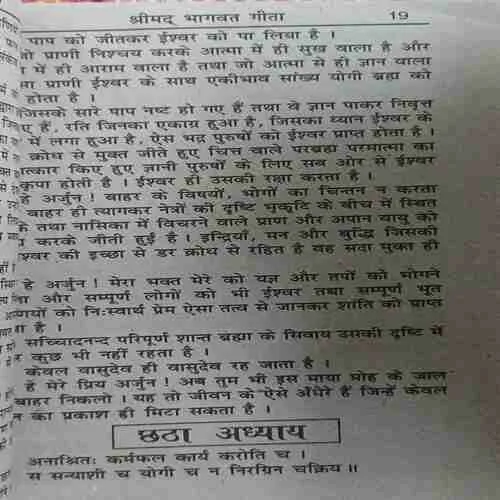 श्रीमद् भागवत गीता 19
पाप को जीतकर ईश्वर को पा लिया है ।
जो प्राणी निश्चय करके आत्मा में ही सुख वाला है और
में ही आराम वाला है तथा जो आत्मा से ही ज्ञान वाला
प्राणी ईश्वर के साथ एकीभाव सांख्य योगी ब्रह्म को
होता है ।
जिसके सारे पाप नष्ट हो गए हैं तथा वे ज्ञान पाकर निवृत्त
हैं, रति जिनका एकाग्र हुआ है, जिसका ध्यान ईश्वर के
में लगा हुआ है, ऐसे भद्र पुरुषों को ईश्वर प्राप्त होता है ।
क्रोध से मुक्त जीते हुए चित्त वाले परब्रह्म परमात्मा का
किए हुए ज्ञानी पुरुषों के लिए सब ओर से ईश्वर
कृपा होती है । ईश्वर ही उसकी रक्षा करता है ।
हे अर्जुन ! बाहर के विषयों, भोगों का चिन्तन न करता
बाहर ही त्यागकर नेत्रों की दृष्टि भृकुटि के बीच में स्थित
तथा नासिका में विचरने वाले प्राण और अपान वायु को
करके जीती हुई है । इन्द्रियाँ, मन और बुद्धि जिसकी
की इच्छा से डर क्रोध से रहित है वह सदा मुक्त ही
हे अर्जुन ! मेरा भक्त मेरे को यज्ञ और तपों को भोगने
और सम्पूर्ण लोगों को भी ईश्वर तथा सम्पूर्ण भूत
को निःस्वार्थ प्रेम ऐसा तत्व से जानकर शांति को प्राप्त
है ।
सच्चिदानन्द परिपूर्ण शान्त ब्रह्मा के सिवाय उसकी दृष्टि में
कुछ भी नहीं रहता है ।
केवल वासुदेव ही वासुदेव रह जाता है ।
हे मेरे प्रिय अर्जुन ! अब तुम भी इस माया मोह के जाल
बाहर निकलो । यह तो जीवन के ऐसे अँधेरे हैं जिन्हें केवल
का प्रकाश ही मिटा सकता है ।
छठा अध्याय
अनाश्रितः कर्मफल कार्य करोति च ।
स सन्याशी च योगी च न निरग्रिन चक्रिय ॥